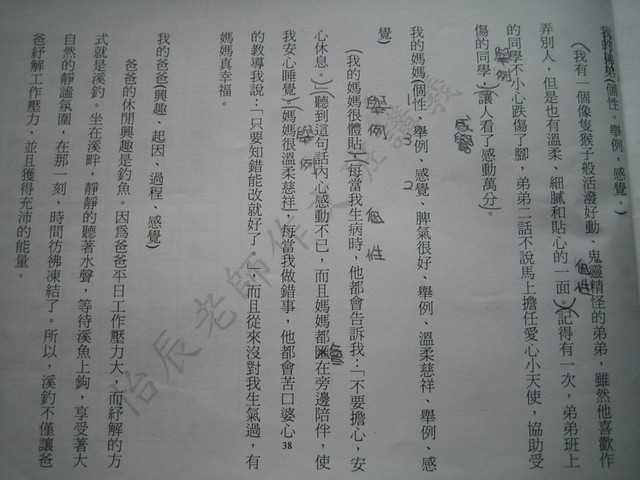 我的弟弟(個性、舉例、感覺。)
(我有一個像隻猴子般活潑好動、鬼靈精怪的弟弟，雖然他喜歡作
弄別人，但是也有溫柔、細膩和貼心的一面。)(記得有一次，弟弟班上
的同學不小心跌傷了腳，弟弟二話不說馬上擔任愛心小天使，協助受
傷的同學，)(讓人看了感動萬分)。
個性
舉例
感覺
我的媽媽(個性、舉例、感覺、脾氣很好、舉例、溫柔慈祥、舉例、感
覺)
1 3 2
(我的媽媽很體貼，)(每當我生病時，他都會告訴我：「不要擔心，安
心休息。」)(聽到這句話內心感動不已，而且媽媽都會在旁邊陪伴，使
我安心睡覺，)(媽媽很溫柔慈祥，每當我做錯事，他都會苦口婆心
的教導我說：「只要知錯能改就好了。」，而且從來沒對我生氣過，有
媽媽真幸福。
舉例
個性
舉例
感覺
38
我的爸爸(興趣、起因、過程、感覺)
爸爸的休閒興趣是釣魚。因為爸爸平日工作壓力大，而紓解的方
式就是溪釣。坐在溪畔，靜靜的聽著水聲，等待溪魚上鉤，享受著大
自然的靜謐氛圍，在那一刻，時間彷彿凍結了。所以，溪釣不僅讓爸
爸紓解工作壓力，並且獲得充沛的能量。
怡辰老師作文班講義